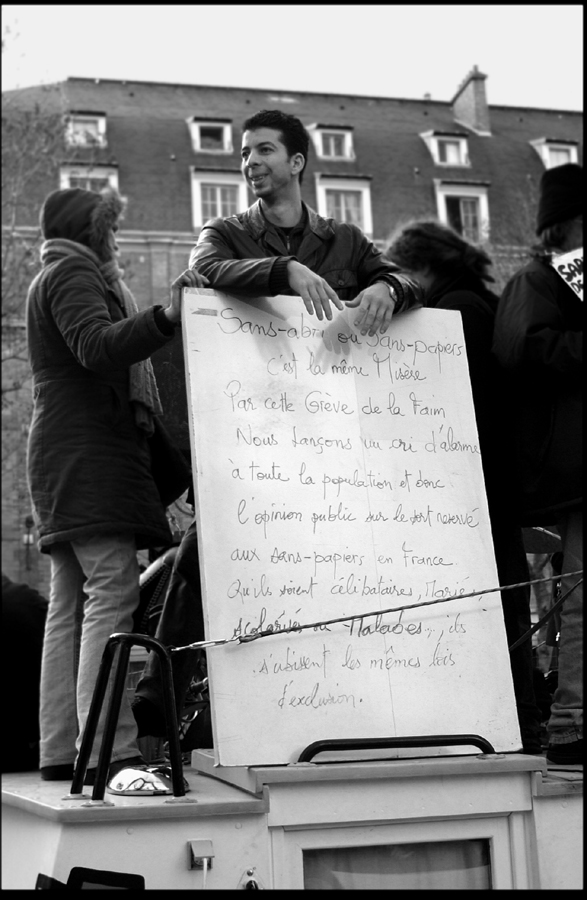 Sans-abri ou Sans-papiers
c'est la même Misère
Par cette Grève de la Faim
Nous Lançons un cri d'alarme
à toute la population et donc
l'opinion public sur le sort reservé
aux sans-papiers en France.
Qu'ils soient célibataires, Mariés,
scolarisés ou Malades, ils
s'ubissent les mêmes lois
d'exclusion.